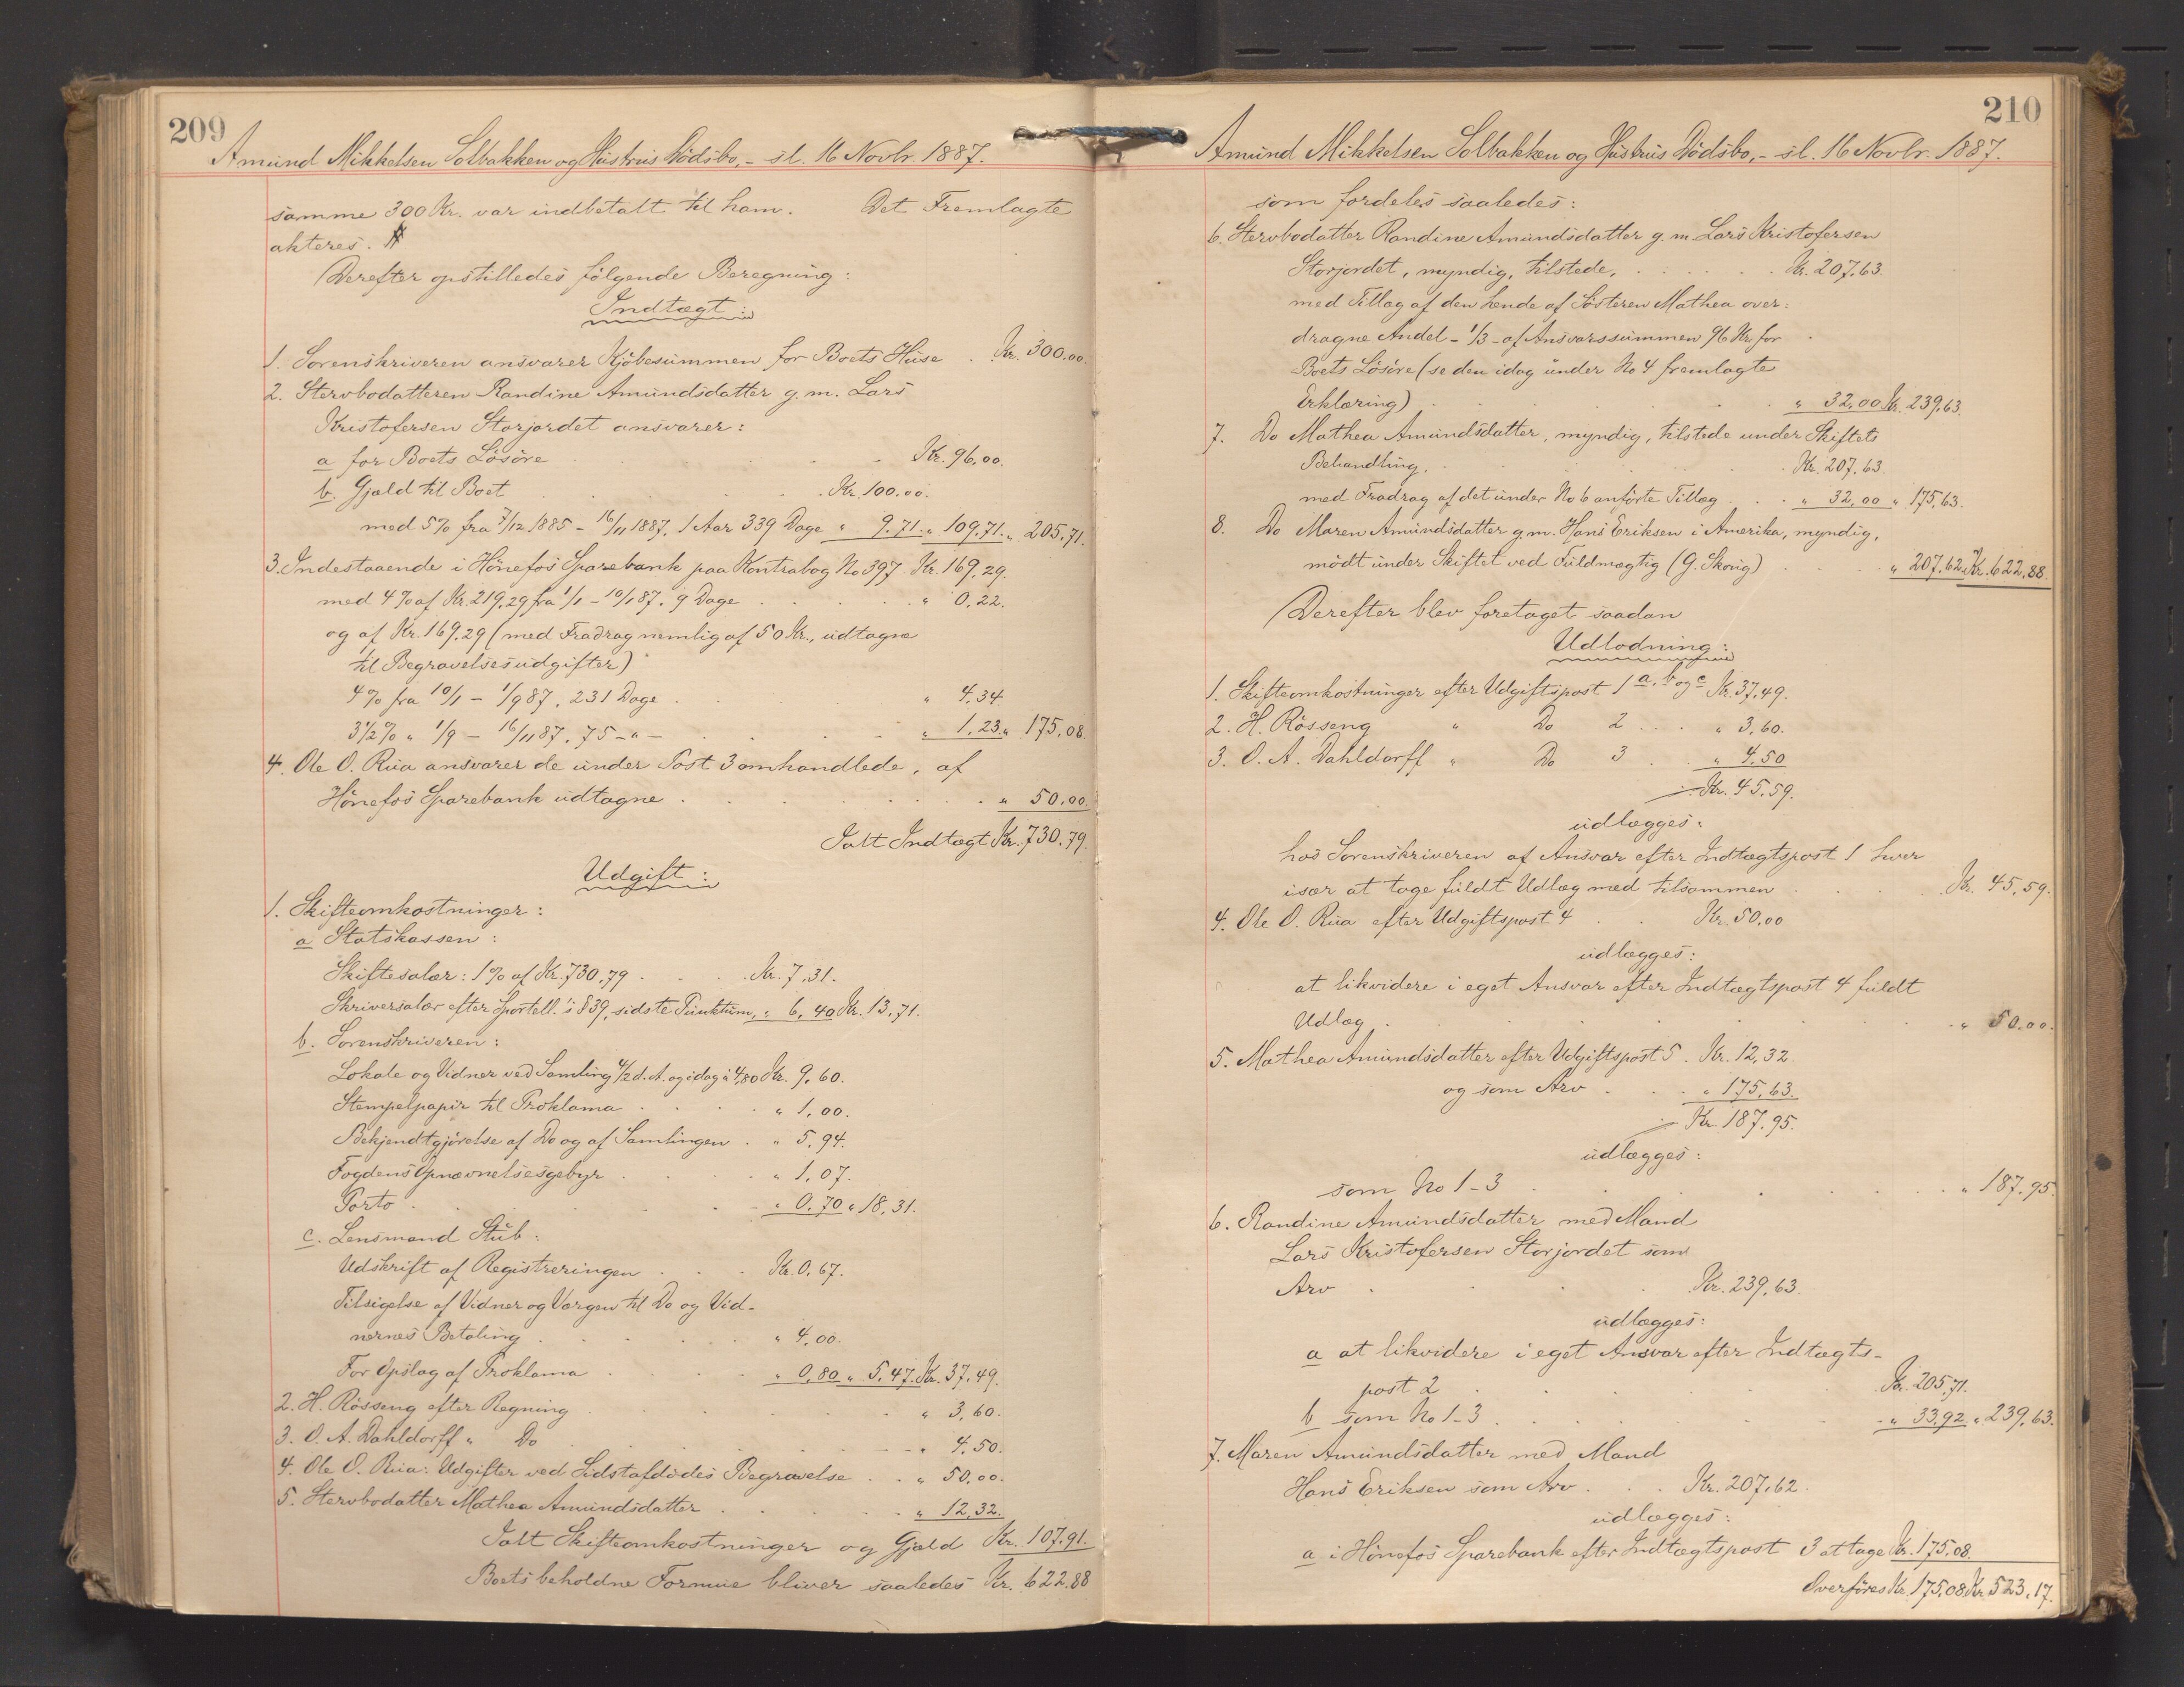 209
Amund Mikkelsen Solbakken og Hustrus Dödsbo, - sl. 16 Novbr. 1887.
samme 300 Kr. var indbetalt til ham. Det Fremlagte
akteres.
Derefter opstilledes fölgende Beregning:
Indtægt:
1. Sorenskriveren ansvarer Kjöbesummen for Boets Huse . Kr. 300.00.
2. Stervbodatteren Randine Amundsdatter g. m. Lars
Kristofersen Storjordet ansvarer:
a for Boets Lösöre . . . Kr. 96,00.
b. Gjæld til Boet . . . Kr. 100.00.
med 5% fra 7/12 1885 - 16/11 1887, 1 Aar 339 Dage " 9.71. " 109,71. " 205,71.
3. Indestaaende i Hönefos Sparebank paa Kontrabog No 397 Kr. 169,29.
med 4% af Kr. 219,29 fra 1/1 - 10/1 87. 9 Dage . . . " 0,22.
og af Kr. 169,29 (med Fradrag nemlig af 50 Kr., udtagne
til Begravelsesudgifter)
4% fra 10/1 - 1/9 87, 231 Dage . . . " 4,34
3 1/2% " 1/9 - 16/11 87. 75 - " - . . . " 1,23 " 175,08.
4. Ole O. Rua ansvarer de under Post 3 omhandlede, af
Hönefos Sparebank udtagne . . . " 50.00.
Ialt Indtægt Kr. 730.79.
Udgift:
1. Skifteomkostninger:
a Statskassen:
Skiftesalær: 1% af Kr. 730,79 . . . Kr. 7,31.
Skriversalær efter Sportell. s § 39, sidste Punktum, " 6,40 Kr. 13,71.
b. Sorenskriveren:
Lokale og Vidner ved Samling 4/2 d. A. og idag à 4,80 Kr. 9,60.
Stempelpapir til Proklama . . . " 1,00.
Bekjendtgjörelse af Do og af Samlingen . " 5,94.
Fogdens Opnævnelsesgebyr . . . " 1,07.
Porto . . . " 0,70 " 18,31.
c. Lensmand Stub:
Udskrift af Registreringen . . . Kr. 0,67.
Tilsigelse af Vidner ogVærgen til Do og Vid-
nernes Betaling . . . " 4,00.
For Opslag af Proklama . . . " 0,80 " 5,47. Kr. 37,49.
2. H. Rösseng efter Regning . . . " 3,60.
3. O. A. Dahldorff " Do . . . " 4,50.
4. Ole O. Rua: Udgifter ved Sidstafdödes Begravelse . . " 50,00.
5. Stervbodatter Mathea Amundsdatter . . . " 12,32.
Ialt Skifteomkostninger og Gjæld Kr. 107.91.
Boets beholdne Formue bliver saaledes Kr. 622.88
210
Amund Mikkelsen Solbakken og Hustrus Dödsbo, - sl. 16 Novbr. 1887.
som fordeles saaledes:
6. Stervbodatter Randine Amundsdatter g. m. Lars Kristofersen
Storjordet, myndig, tilstede, . . . Kr. 207,63.
med Tillæg af den hende af Sösteren Mathea over:
dragne Andel - 1/3 - af Ansvarssummen 96 Kr. for
Boets Lösöre (se den idag under No 4 fremlagte
Erklæring) . . . " 32,00 Kr. 239,63.
7. Do Mathea Amundsdatter, myndig, tilstede under Skiftets
Behandling, . . . Kr. 207,63.
med Fradrag af det under No 6 anförte Tillæg . . . " 32,00 " 175,63.
8. Do Maren Amundsdatter g. m. Hans Eriksen i Amerika, myndig,
mödt under Skiftet ved Fuldmægtig (G. Skoug) . . . " 207.62. Kr. 622,88.
Derefter blev foretaget saadan
Udlodning:
1. Skifteomkostninger efter Udgiftspost 1 a, b og c Kr. 37,49.
2. H. Rösseng " Do 2 . . . " 3,60.
3. O. A. Dahldorff " Do 3 . . " 4,50
Kr. 45,59.
udlægges:
hos Sorenskriveren af Ansvar efter Indtægtspost 1 hver
især at tage fuldt Udlæg med tilsammen . . . Kr. 45,59.
4. Ole O. Rua efter Udgiftspost 4 . . Kr. 50.00
udlægges:
at likvidere i eget Ansvar efter Indtægtspost 4 fuldt
Udlæg . . . " 50.00.
5. Mathea Amundsdatter efter Udgiftspost 5. Kr. 12,32.
og som Arv . . . " 175,63.
Kr. 187.95.
udlægges:
som No 1-3 . . . " 187.95.
6. Randine Amundsdatter med Mand
Lars Kristofersen Storjordet som
Arv . . . Kr. 239,63.
udlægges:
a at likvidere i eget Ansvar efter Indtægts-
post 2 . . . Kr. 205,71.
b som No 1-3 . . . " 33,92 " 239,63.
7. Maren Amundsdatter med Mand
Hans Eriksen som Arv . . . Kr. 207,62.
udlægges:
a i Hönefos Sparebank efter Indtægtspost 3 at tage Kr. 175,08.
Overföres Kr. 175,08 Kr. 523,17.